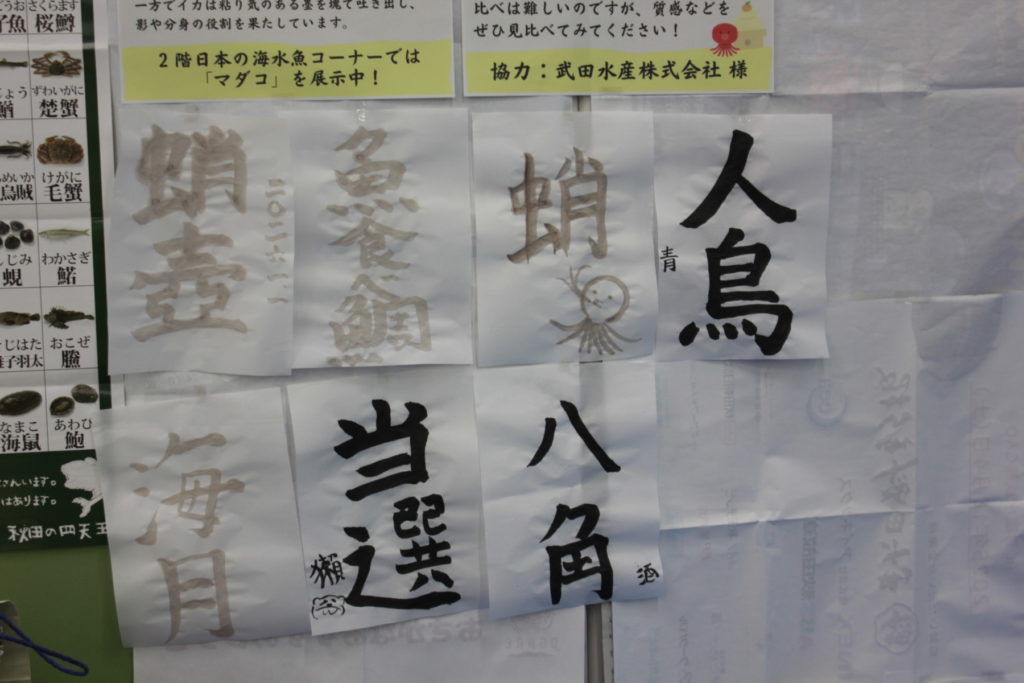 一方でイカは粘り気のある墨を塊で吐き出し、
影や分身の役割を果たしています。
2階日本の海水魚コーナーでは
「マダコ」を展示中！
比べは難しいのですが、質感などを
ぜひ見比べてみてください！
協力：武田水産株式会社 様
さくらます
桜鱒
ずわいがに
楚蟹
けがに
毛蟹
烏賊
しじみ
蜆
わかさぎ
鰙
きじはた
雉子羽太
おこぜ
なまこ
海鼠
あわび
鮑
はあります。
秋田の四天王
蛸壺
魚養鯛
蛸
人鳥
青
海月
当選
獺
八角
酒